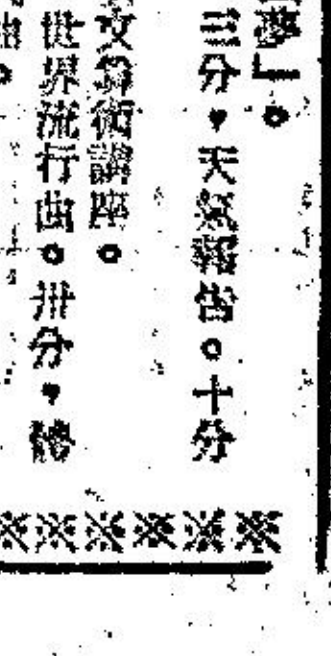 夢」。
三分，天氣報告。十分
文算術講座。
世界流行曲。卅分，
曲。